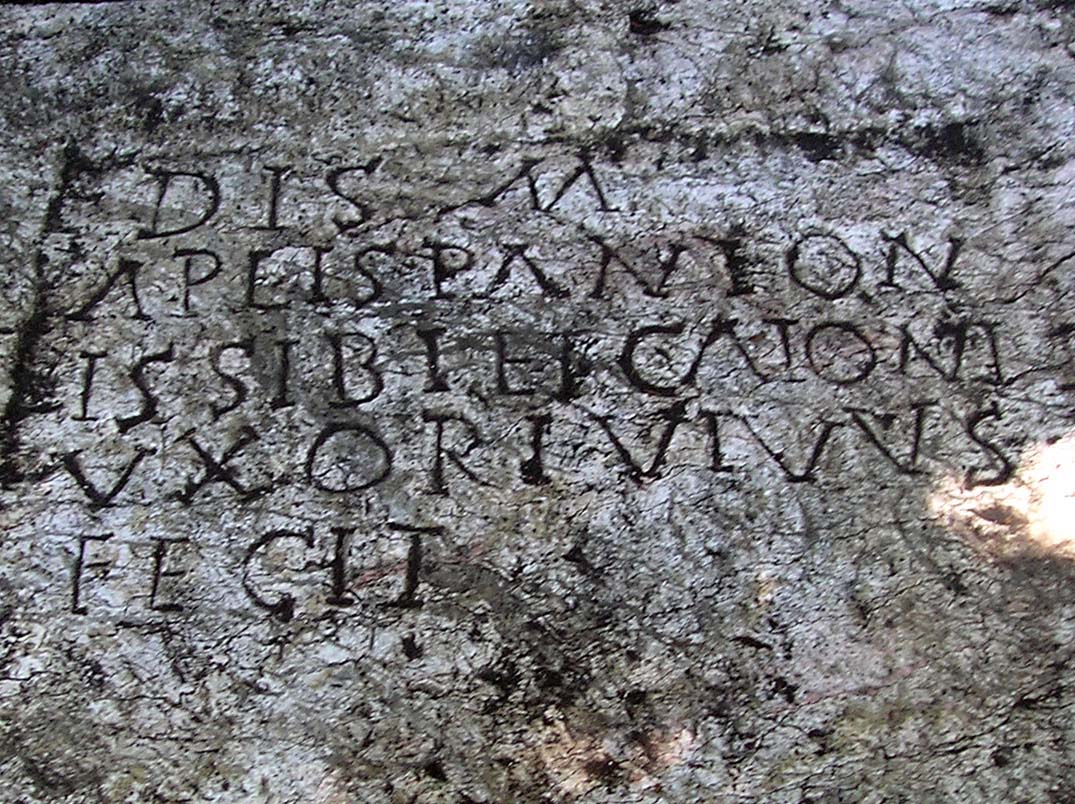 DIS M
APLISPANTON
ISSIBIETCAIONI
VXORIVIVVS
FECIT